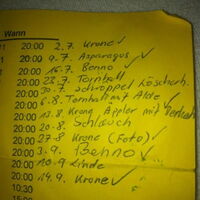 Wann
20:00 2.7. Krone ✓
20:00 9.7. Asparagus ✓
20:00 16.7. Benno ✓
20:00 23.7. Tornhall
20:00 30.7. Schröppel Löscherh.
20:00 6.8. Tornhall mit Alde ✓
20:00 13.8. Krone, Appler mit
20:00 20.8. Schlauch
20:00 27.8 Krone (Foto) ✓
20:00 3.9. Behno ✓
20:00 10.9 Linde
20:00 17.9. Krone ✓
10:30